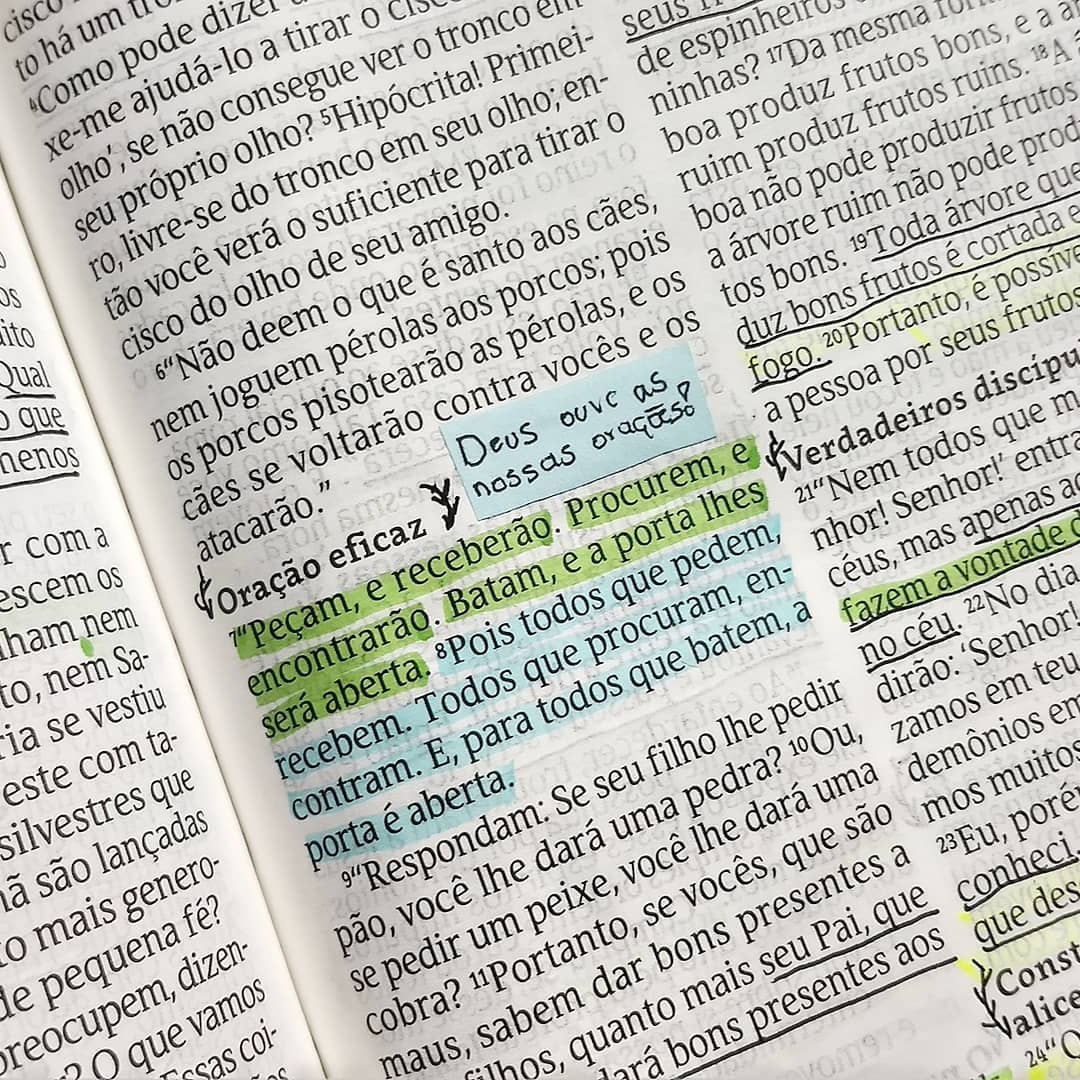 os
uito
Qual
o que
nenos
r com a
escem os
lham, nem
to, nem Sa-
ria se vestiu
este com ta-
silvestres que
ã são lançadas
o mais genero-
de pequena fé?
preocupem, dizen-
? O que vamos
ssas coi-
cisco
to há um
4Como pode dizer a
xe-me ajudá-lo a tirar o cisco
olho’, se não consegue ver o tronco em
seu próprio olho? 5Hipócrita! Primei-
ro, livre-se do tronco em seu olho; en-
tão você verá o suficiente para tirar o
cisco do olho de seu amigo.
6“Não deem o que é santo aos cães,
nem joguem pérolas aos porcos; pois
os porcos pisotearão as pérolas, e os
cães se voltarão contra vocês e os
atacarão.”
Deus ouve as
nossas oração!
Oração eficaz
7“Peçam, e receberão. Procurem, e
encontrarão. Batam, e a porta lhes
será aberta. 8Pois todos que pedem,
recebem. Todos que procuram, en-
contram. E, para todos que batem, a
porta é aberta.
9“Respondam: Se seu filho lhe pedir
pão, você lhe dará uma pedra? 10Ou,
se pedir um peixe, você lhe dará uma
cobra? 11Portanto, se vocês, que são
maus, sabem dar bons presentes a
filhos, quanto mais seu Pai, que
dará bons presentes aos
seus
de espinheiros
ninhas? 17Da mesma for
boa produz frutos bons, e a á
ruim produz frutos ruins. 18A á
boa não pode produzir frutos
a árvore ruim não pode prod
tos bons. 19Toda árvore que
duz bons frutos é cortada e
fogo. 20Portanto, é possíve
a pessoa por seus frutos
Verdadeiros discípu
21“Nem todos que m
nhor! Senhor!’ entra
céus, mas apenas aq
fazem a vontade d
no céu. 22No dia
dirão: ‘Senhor!
zamos em teu
demônios em
mos muitos
23Eu, poré
conheci.
que des
Const
alice
24“O